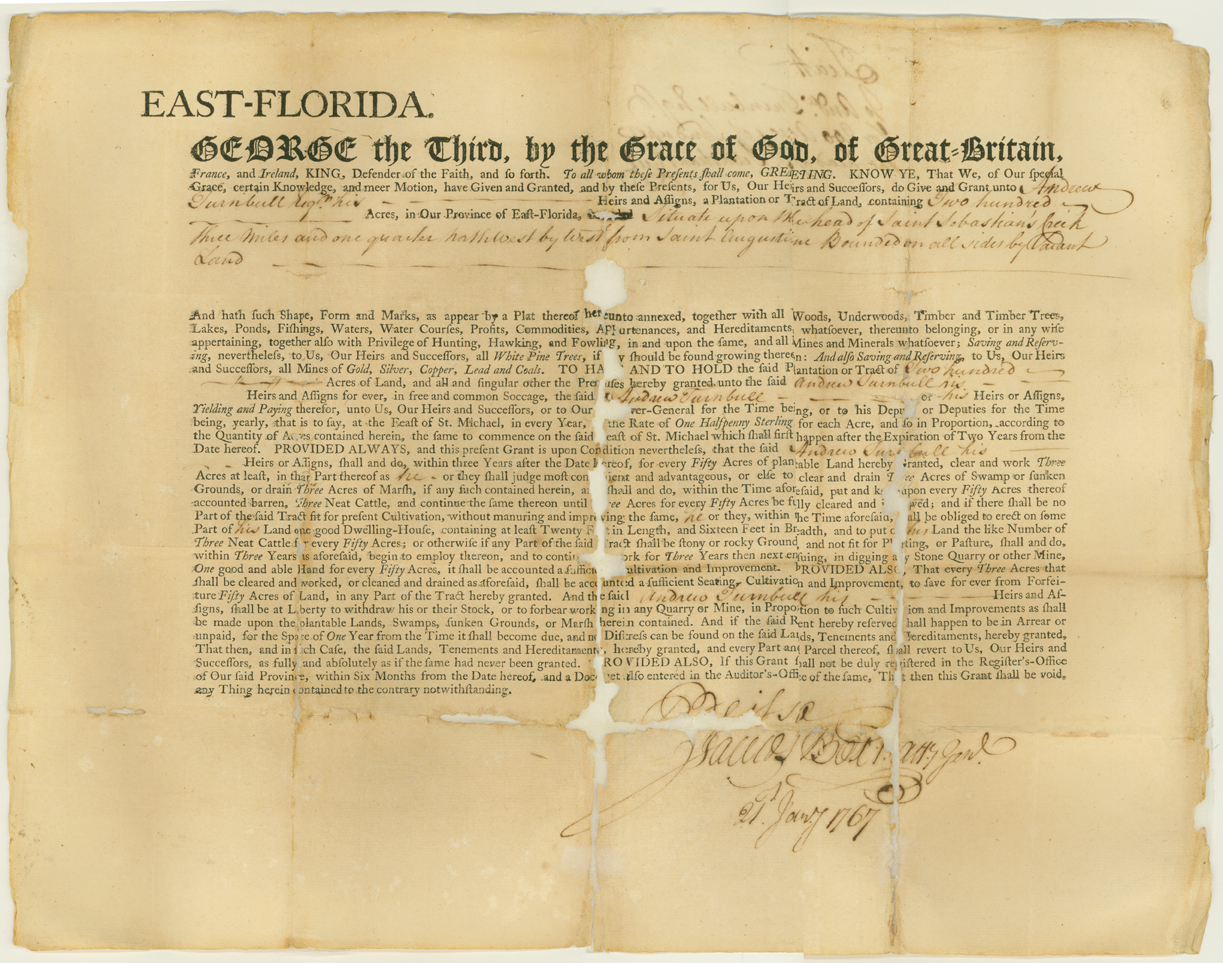 EAST-FLORIDA.
GEORGE the Third, by the Grace of God, of Great-Britain,
France, and Ireland, KING, Defender of the Faith, and so forth. To all whom these Presents shall come, GREETING. KNOW YE, That We, of Our special
Grace, certain Knowledge, and meer Motion, have Given and Granted, and by these Presents, for Us, Our Heirs and Successors, do Give and Grant unto Andrew
Turnbull Esqr. his Heirs and Assigns, a Plantation or Tract of Land, containing Two hundred
Acres, in Our Province of East-Florida, Situate upon the head of Saint Sebastian's Creek
Three Miles and one quarter northwest by west from Saint Augustine Bounded on all sides by Vacant
Land
And hath such Shape, Form and Marks, as appear by a Plat thereof hereunto annexed, together with all Woods, Underwoods, Timber and Timber Trees,
Lakes, Ponds, Fishings, Waters, Water Courses, Profits, Commodities, Appurtenances, and Hereditaments, whatsoever, thereunto belonging, or in any wise
appertaining, together also with Privilege of Hunting, Hawking, and Fowling, in and upon the same, and all Mines and Minerals whatsoever; Saving and Reserv-
ing, nevertheless, to Us, Our Heirs and Successors, all White Pine Trees, if y should be found growing thereon: And also Saving and Reserving, to Us, Our Heirs
and Successors, all Mines of Gold, Silver, Copper, Lead and Coals. TO HA AND TO HOLD the said Plantation or Tract of Two hundred
Acres of Land, and all and singular other the Pre ises hereby granted unto the said Andrew Turnbull his
Heirs and Assigns for ever, in free and common Soccage, the said Andrew Turnbull or his Heirs or Assigns,
Yielding and Paying therefor, unto Us, Our Heirs and Successors, or to Our ver-General for the Time being, or to his Depu or Deputies for the Time
being, yearly, that is to say, at the Feast of St. Michael, in every Year, the Rate of One Halfpenny Sterling for each Acre, and so in Proportion, according to
the Quantity of Acres contained herein, the same to commence on the said east of St. Michael which shall first happen after the Expiration of Two Years from the
Date hereof. PROVIDED ALWAYS, and this present Grant is upon Condition nevertheless, that the said Andrew Turnbull his
Heirs or Assigns, shall and do, within three Years after the Date hereof, for every Fifty Acres of plantable Land hereby Granted, clear and work Three
Acres at least, in that Part thereof as he or they shall judge most con ient and advantageous, or else to clear and drain Three Acres of Swamp or sunken
Grounds, or drain Three Acres of Marsh, if any such contained herein, a shall and do, within the Time aforesaid, put and k upon every Fifty Acres thereof
accounted barren, Three Neat Cattle, and continue the same thereon until ree Acres for every Fifty Acres be fully cleared and ved; and if there shall be no
Part of the said Tract fit for present Cultivation, without manuring and improving the same, he or they, within the Time aforesaid, all be obliged to erect on some
Part of his Land one good Dwelling-House, containing at least Twenty F t in Length, and Sixteen Feet in Breadth, and to put his Land the like Number of
Three Neat Cattle for every Fifty Acres; or otherwise if any Part of the said Tract shall be stony or rocky Ground, and not fit for Pl ting, or Pasture, shall and do,
within Three Years as aforesaid, begin to employ thereon, and to conti ork for Three Years then next ensuing, in digging any Stone Quarry or other Mine,
One good and able Hand for every Fifty Acres, it shall be accounted a suffici ultivation and Improvement. PROVIDED ALSO, That every Three Acres that
shall be cleared and worked, or cleaned and drained as aforesaid, shall be accounted a sufficient Seating, Cultivation and Improvement, to save for ever from Forfei-
ture Fifty Acres of Land, in any Part of the Tract hereby granted. And the said Andrew Turnbull his Heirs and As-
signs, shall be at Liberty to withdraw his or their Stock, or to forbear working in any Quarry or Mine, in Proportion to such Cultiv ion and Improvements as shall
be made upon the plantable Lands, Swamps, sunken Grounds, or Marsh herein contained. And if the said Rent hereby reserved shall happen to be in Arrear or
unpaid, for the Space of One Year from the Time it shall become due, and no Distress can be found on the said Lands, Tenements and Hereditaments, hereby granted,
That then, and in such Case, the said Lands, Tenements and Hereditaments, hereby granted, and every Part and Parcel thereof, shall revert to Us, Our Heirs and
Successors, as fully and absolutely as if the same had never been granted. PROVIDED ALSO, If this Grant shall not be duly registered in the Register's-Office
of Our said Province, within Six Months from the Date hereof, and a Doc et also entered in the Auditor's-Office of the same, That then this Grant shall be void,
any Thing herein contained to the contrary notwithstanding.
21st Jany 1767